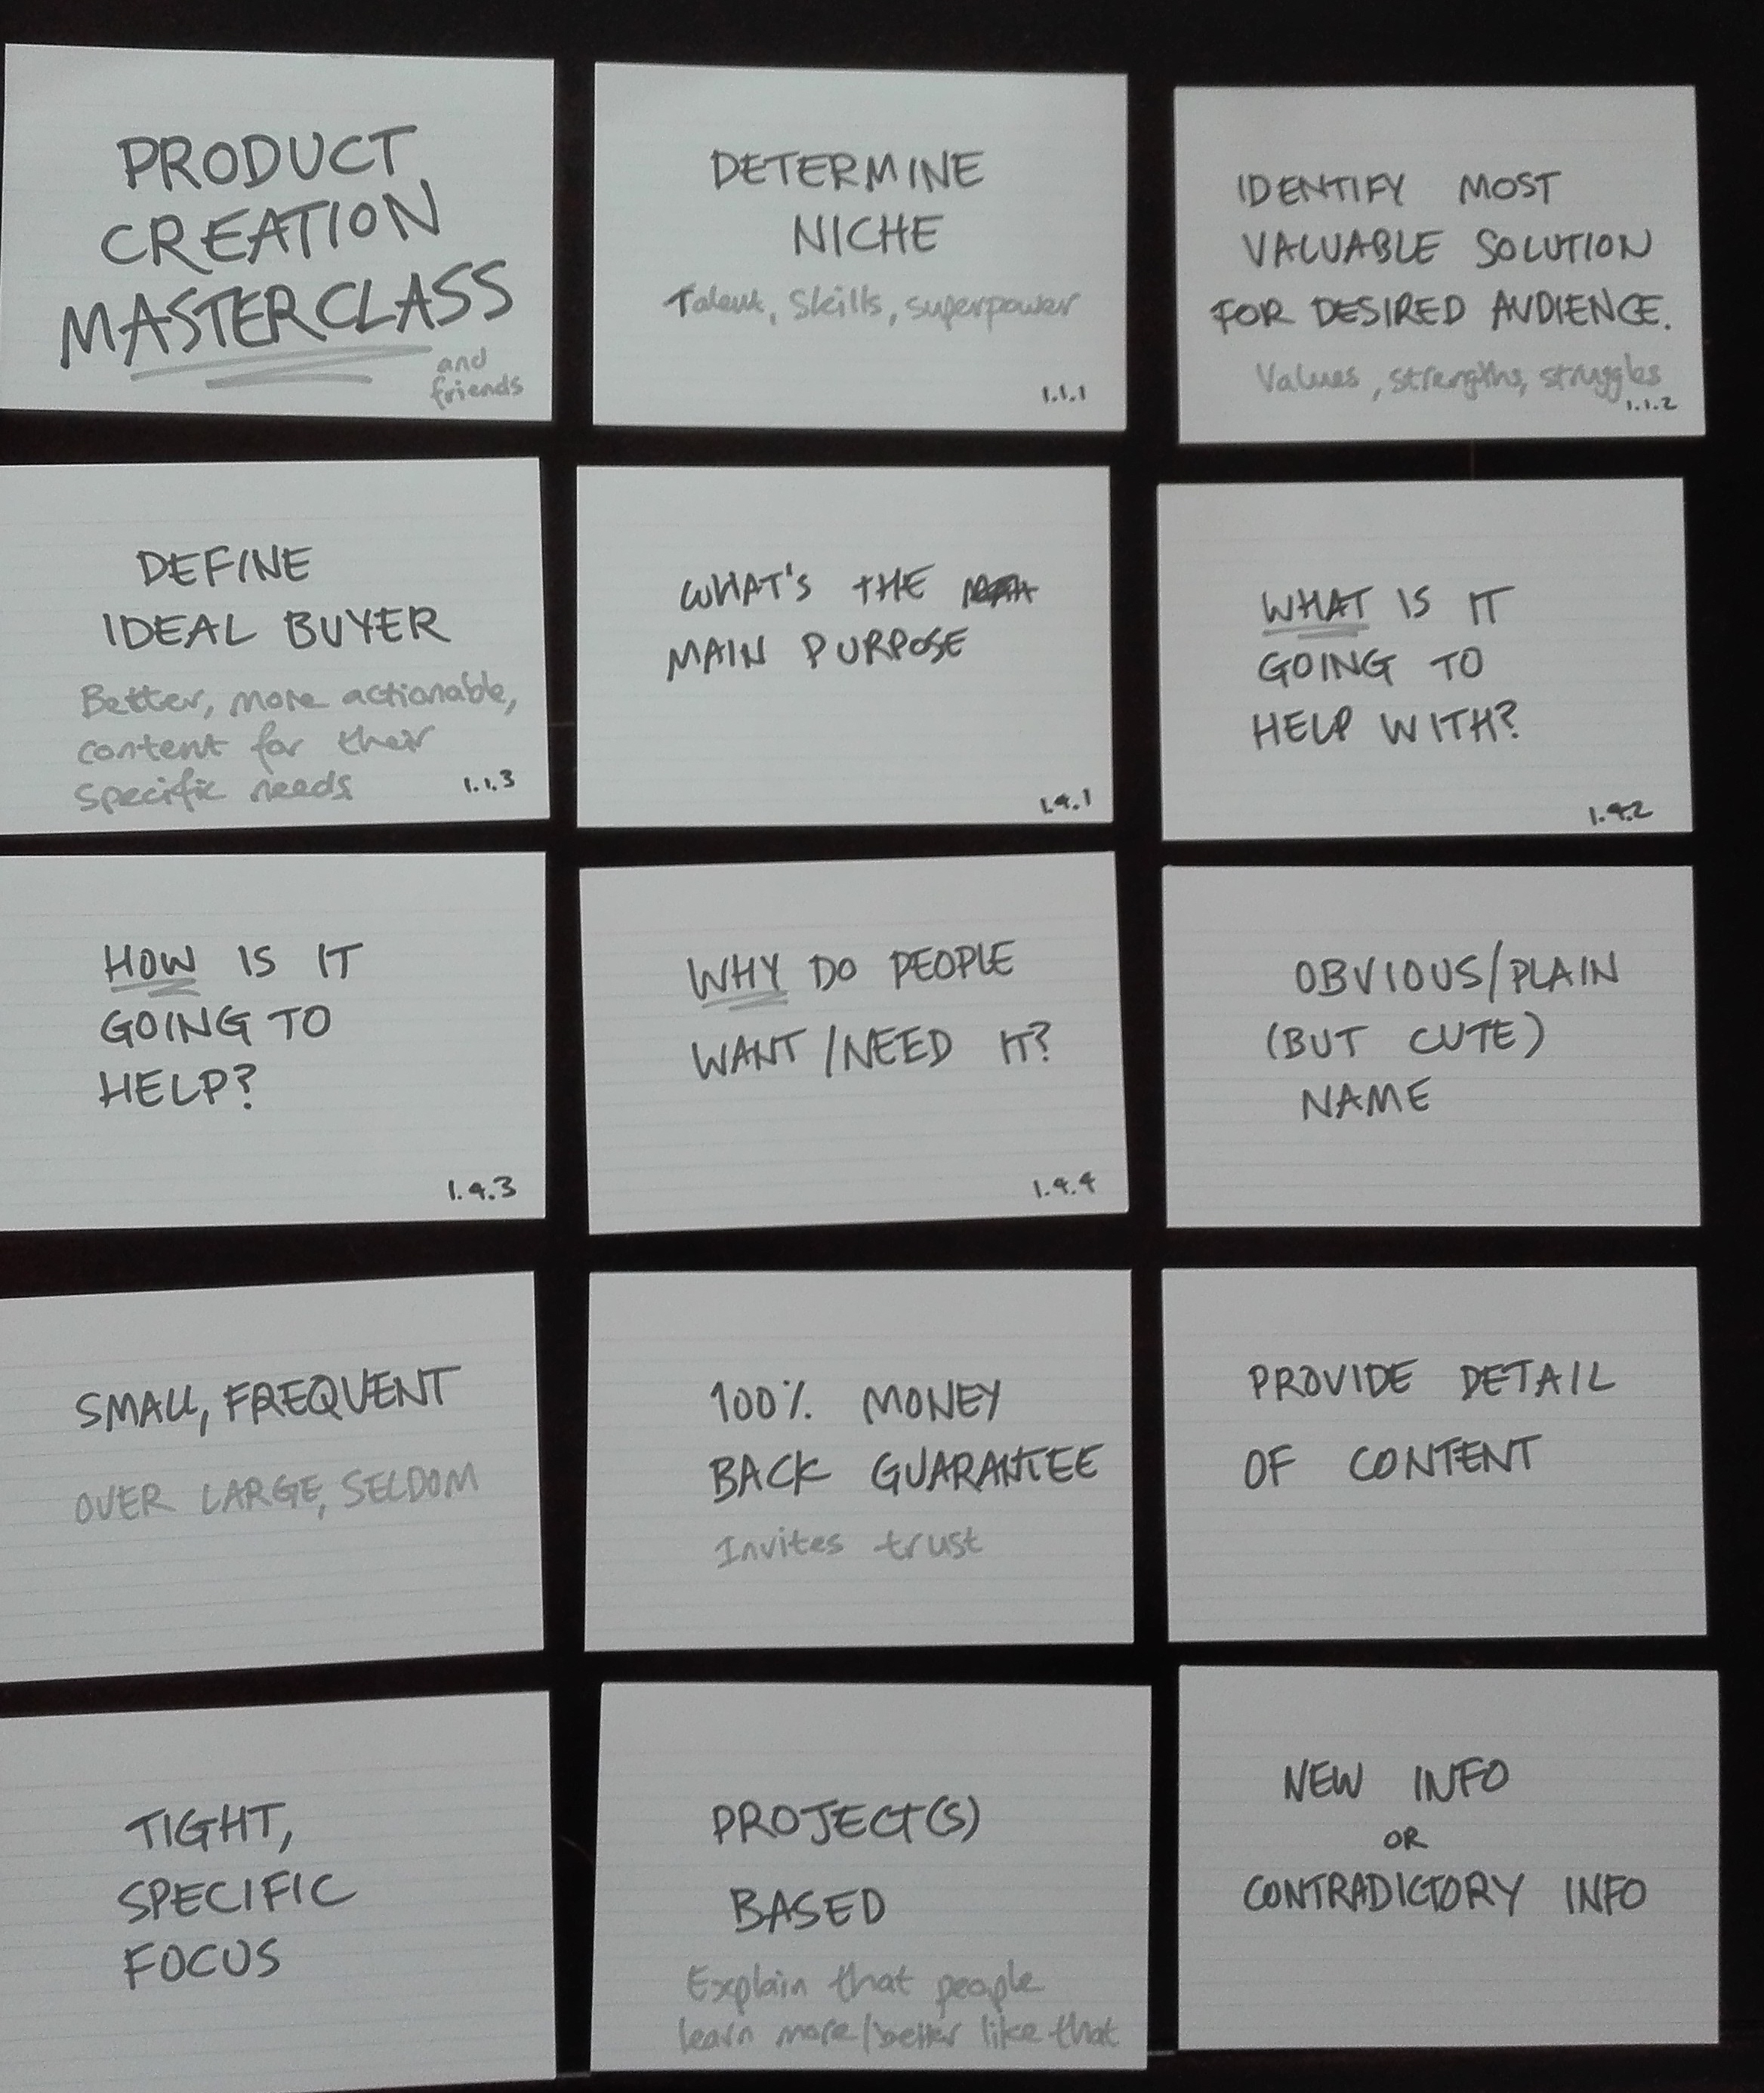 PRODUCT
CREATION
MASTERCLASS
and
friends
DETERMINE
NICHE
Talent, Skills, superpower
1.1.1
IDENTIFY MOST
VALUABLE SOLUTION
FOR DESIRED AUDIENCE.
Values, strengths, struggles
1.1.2
DEFINE
IDEAL BUYER
Better, more actionable,
content for their
specific needs
1.1.3
WHAT'S THE
MAIN PURPOSE
1.4.1
WHAT IS IT
GOING TO
HELP WITH?
1.4.2
HOW IS IT
GOING TO
HELP?
1.4.3
WHY DO PEOPLE
WANT/NEED IT?
1.4.4
OBVIOUS/PLAIN
(BUT CUTE)
NAME
SMALL, FREQUENT
OVER LARGE, SELDOM
100% MONEY
BACK GUARANTEE
Invites trust
PROVIDE DETAIL
OF CONTENT
TIGHT,
SPECIFIC
FOCUS
PROJECT(S)
BASED
Explain that people
learn more/better like that
NEW INFO
OR
CONTRADICTORY INFO